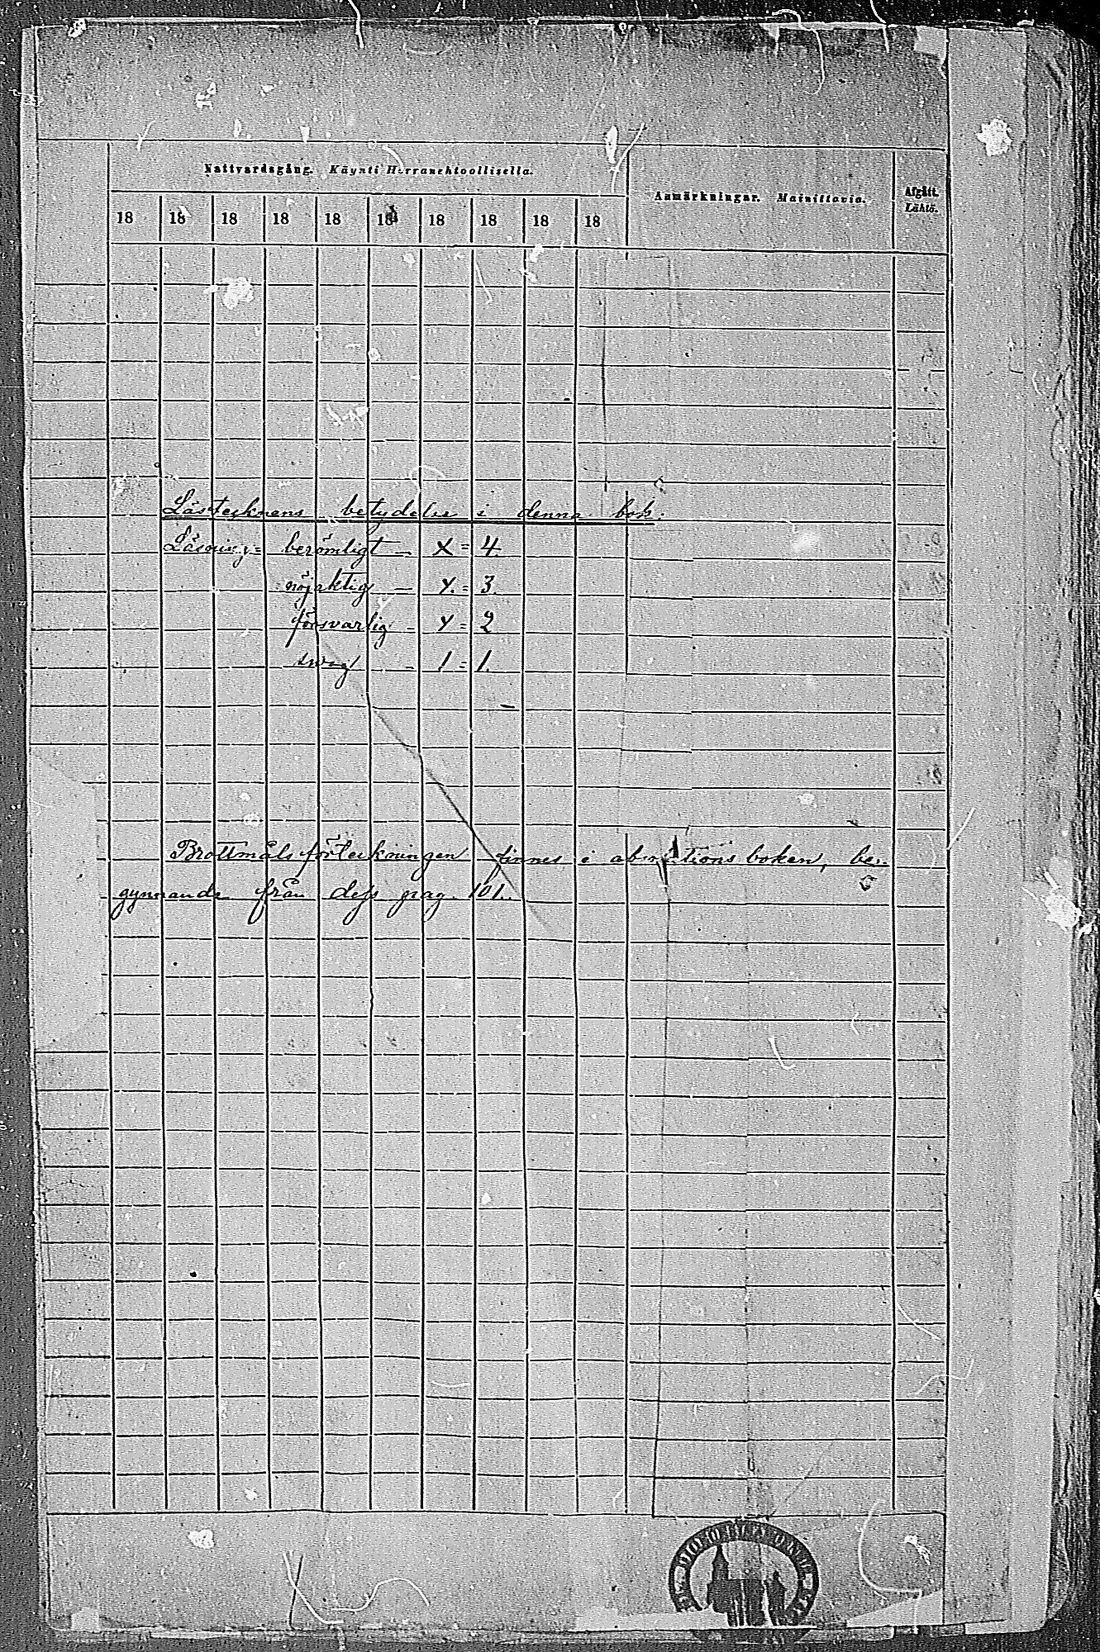 Nattvardsgång. Käynti Herranehtoollisella.
Anmärkningar. Mainittavia.
Afgått. Lähtö.
18 18 18 18 18 18 18 18 18 18
Lästecknens betydelse i denna bok:
Läsning: berömligt — X = 4
nöjaktig — Y. = 3.
försvarlig - Y = 2
svag - 1 = 1.
Brottmåls förteckningen finnes i absolutions boken, be-
gynnande från dess pag. 101.